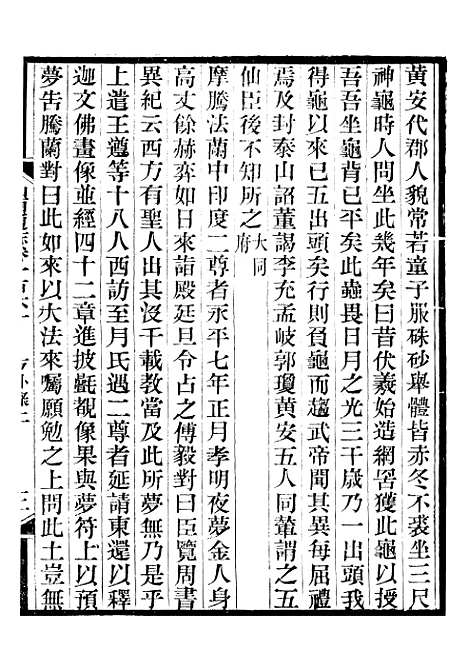 黃安代郡人貌常若童子服硃砂舉體皆赤冬不裘坐三尺
神龜時人問坐此幾年矣曰昔伏羲始造網罟獲此龜以授
吾吾坐龜背已平矣此蟲畏日月之光三千歲乃一出頭我
得龜以來已五出頭矣行則負龜而趨武帝聞其異每屈禮
焉及封泰山詔董謁李充孟岐郭瓊黃安五人同輦謂之五
仙臣後不知所之大同府
摩騰法蘭中印度二尊者永平七年正月孝明夜夢金人身
高丈餘赫奕如日來詣殿廷令占之傅毅對曰臣覽周書
異紀云西方有聖人出其沒千載教當及此所夢無乃是乎
上遣王遵等十八人西訪至月氏遇二尊者延請東還以釋
迦文佛畫像並經四十二章進披氎覩像果與夢符上以預
夢告騰蘭對曰此如來以大法來囑願勉之上問此土豈無